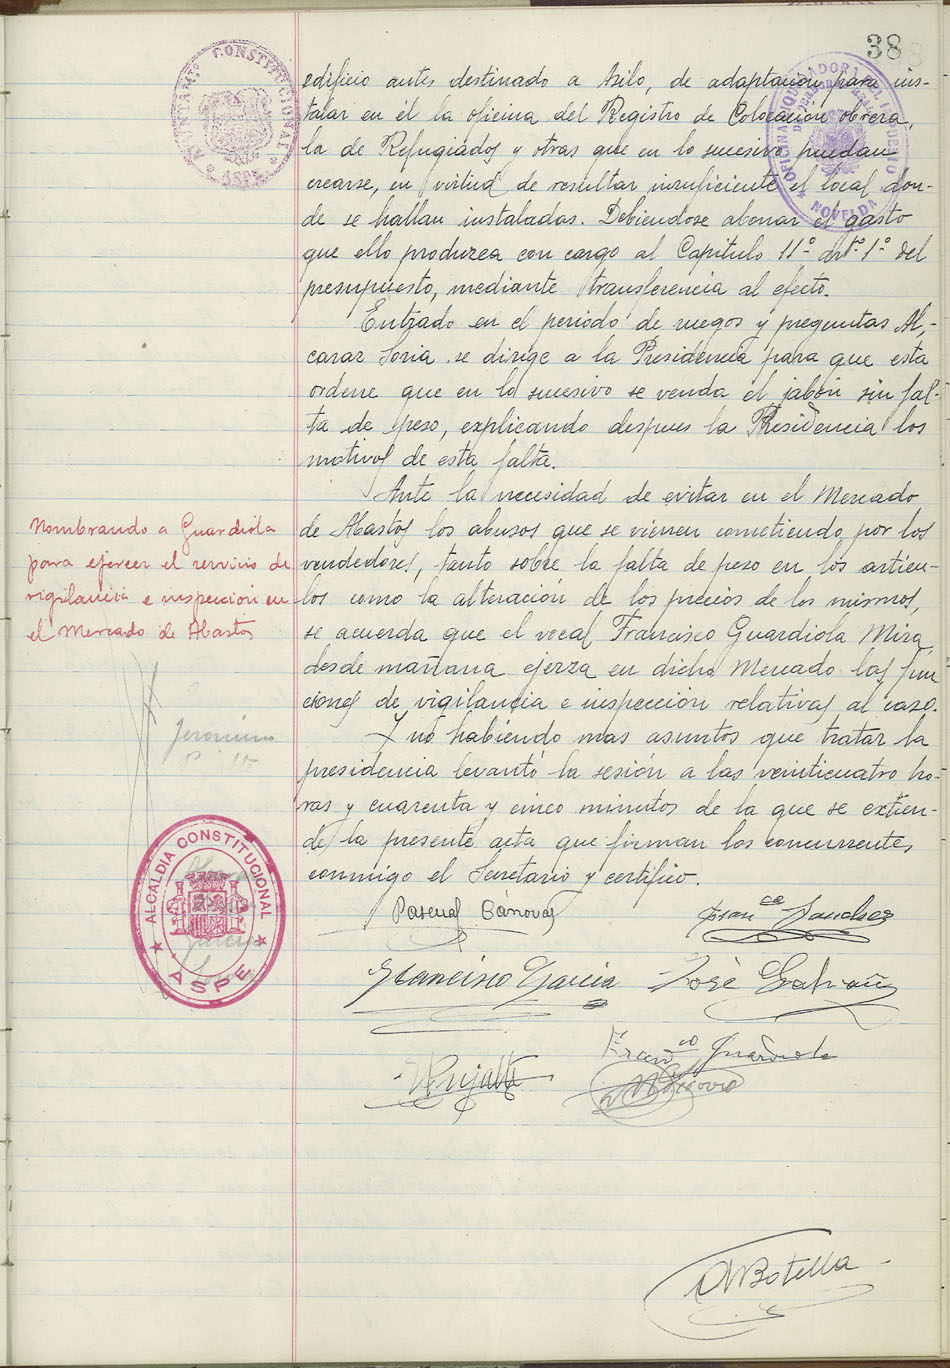 38
AYUNTAMTº CONSTITUCIONAL
ASPE
OFICINA LIQUIDADORA DEL IMPUESTO
DE DERECHOS REALES
NOVELDA
edificio antes destinado a Asilo, de adaptación para ins-
talar en él la oficina del Registro de Colocación obrera,
la de Refugiados y otras que en lo sucesivo puedan
crearse, en virtud de resultar insuficiente el local don-
de se hallan instaladas. Debiendose abonar el gasto
que ello produzca con cargo al Capitulo 11º artº 1º del
presupuesto, mediante transferencia al efecto.
Entrado en el periodo de ruegos y preguntas Al-
caraz Soria se dirige a la Presidencia para que esta
ordene que en lo sucesivo se venda el jabón sin fal-
ta de peso, explicando despues la Presidencia los
motivos de esta falta.
Nombrando a Guardiola
para ejercer el servicio de
vigilancia e inspeccion en
el Mercado de Abastos
Ante la necesidad de evitar en el Mercado
de Abastos los abusos que se vienen cometiendo por los
vendedores, tanto sobre la falta de peso en los artícu-
los como la alteración de los precios de los mismos,
se acuerda que el vocal Francisco Guardiola Mira,
desde mañana ejerza en dicho Mercado las fun
ciones de vigilancia e inspección relativas al caso.
Y no habiendo mas asuntos que tratar la
presidencia levantó la sesión a las veinticuatro ho-
ras y cuarenta y cinco minutos de la que se extien-
de la presente acta que firman los concurrentes
conmigo el Secretario y certifico.
Jeronimo
ALCALDIA CONSTITUCIONAL
ASPE
Pascual Cánovas
Franco Sanchez
Francisco Garcia
José Galvañ
Franco Guardiola
A Botella